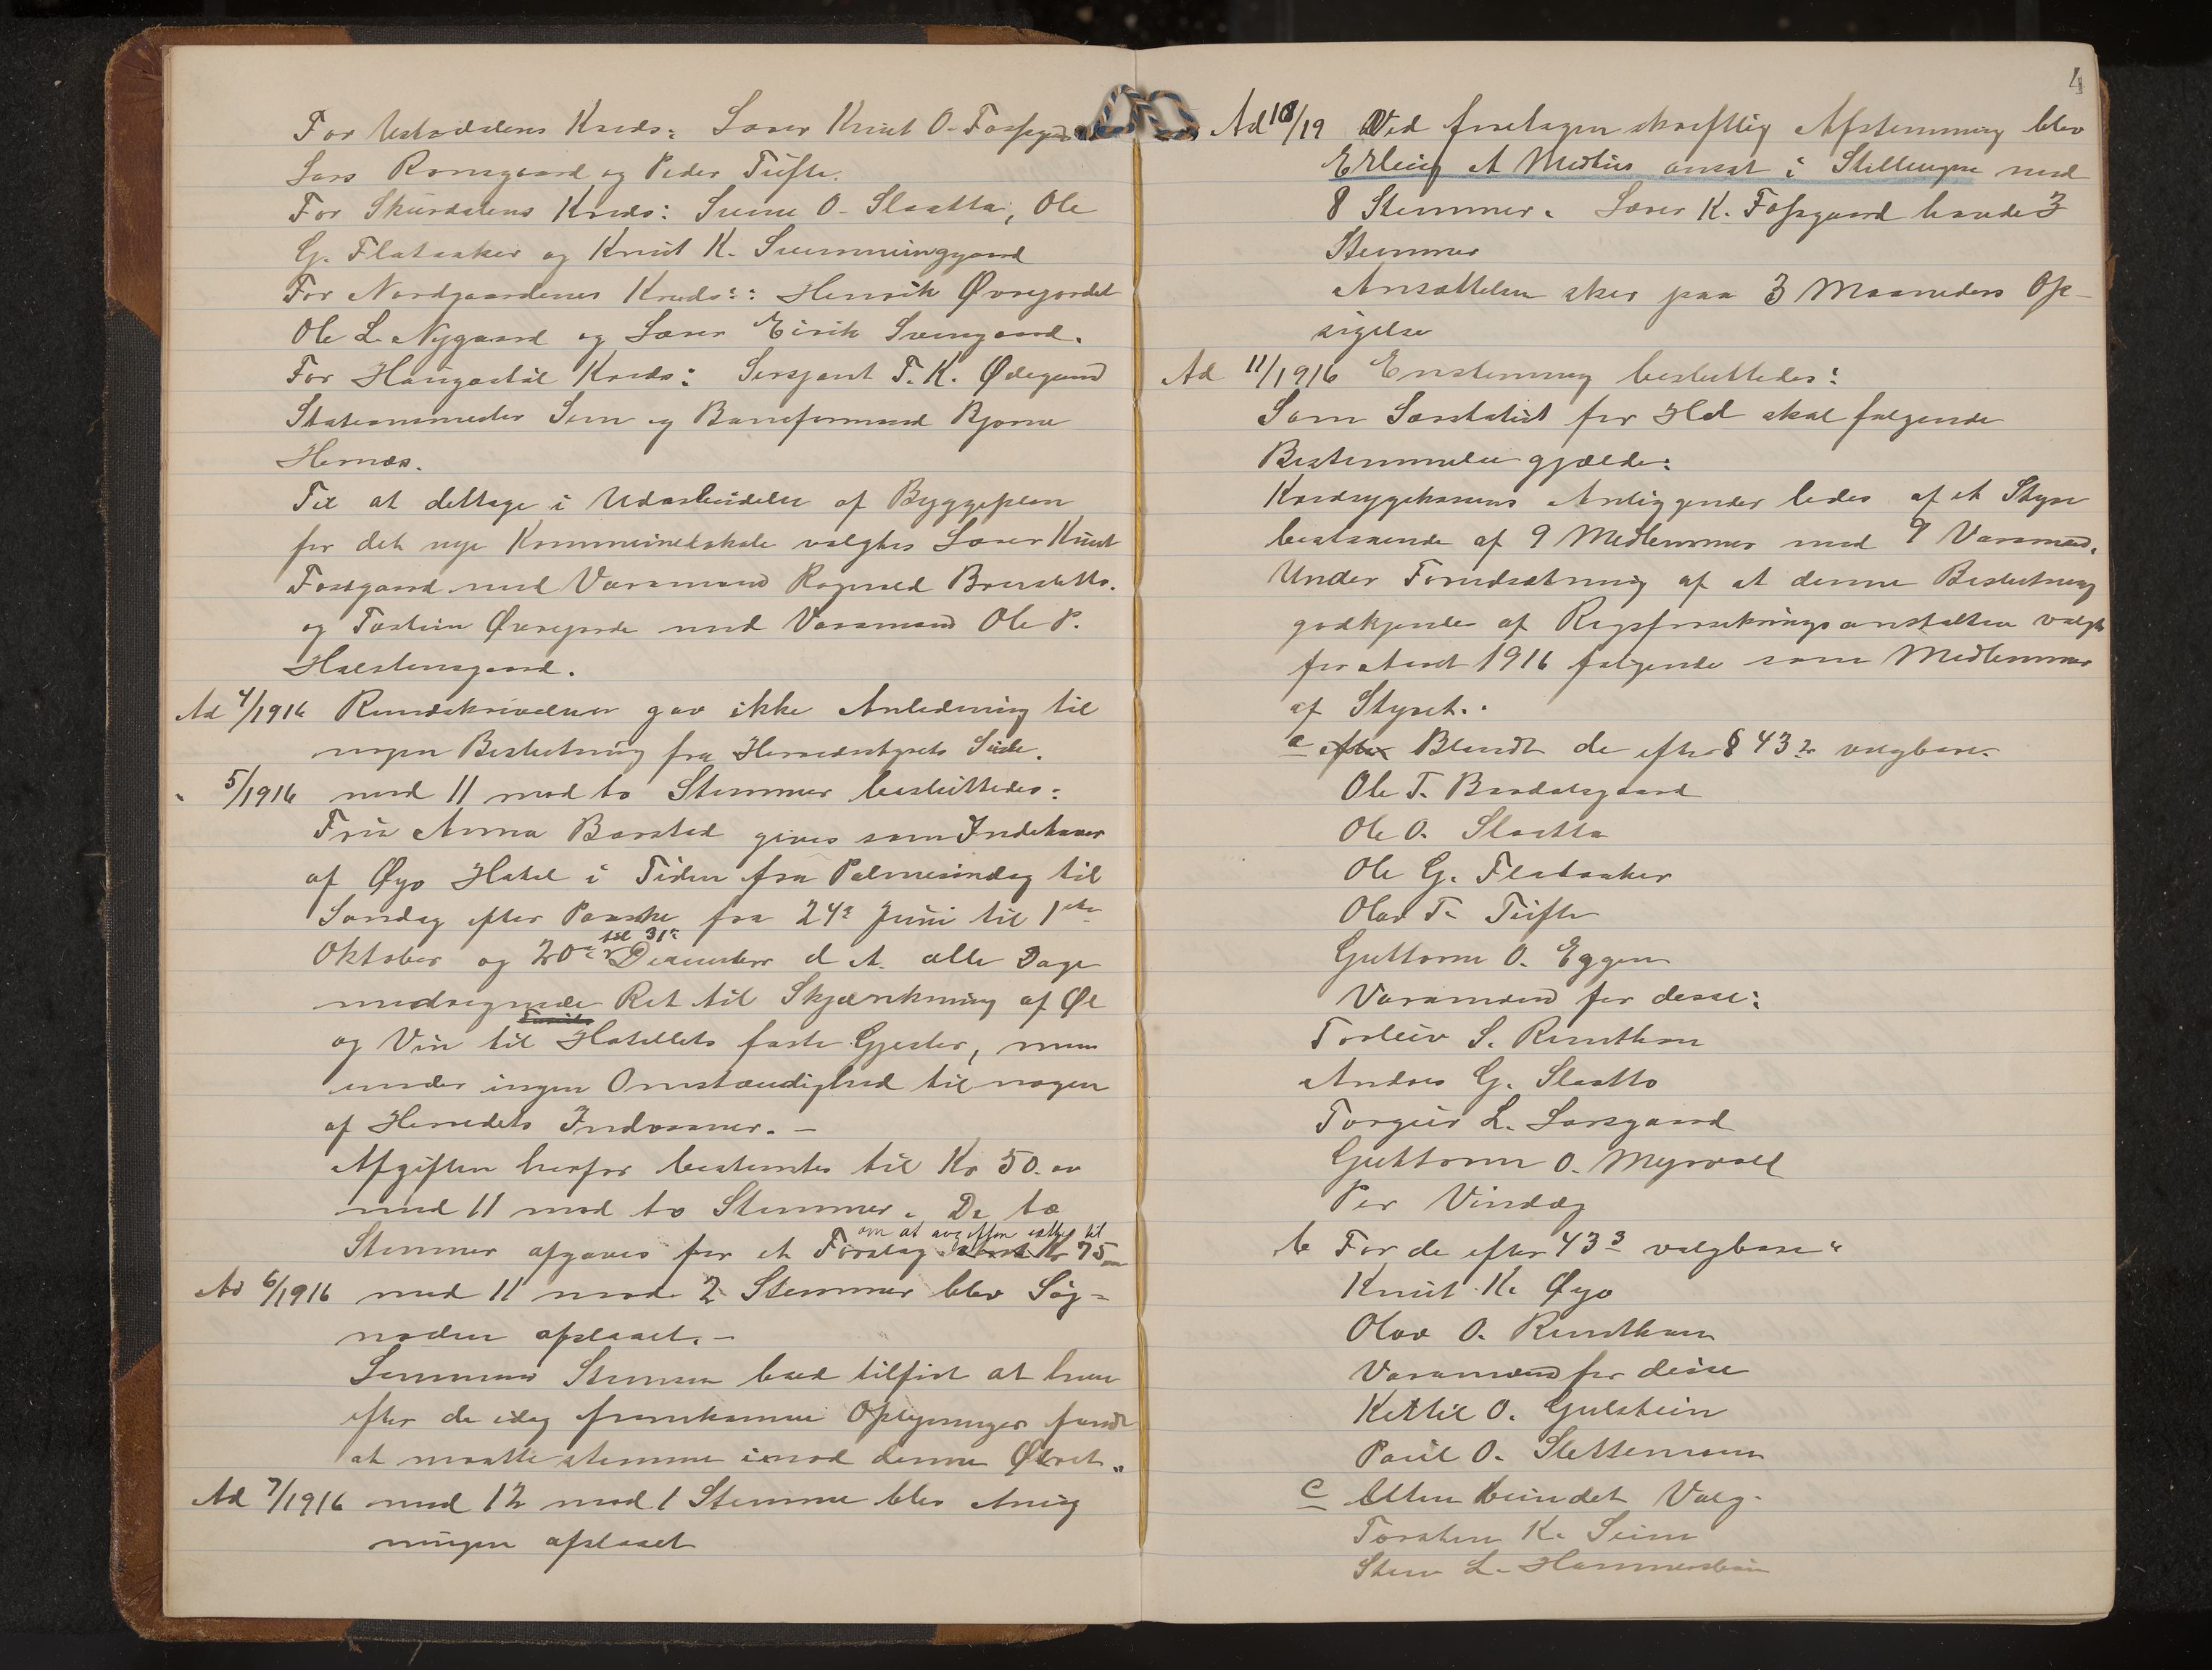 For Ustedalens Kreds: Lærer Knut O. Fossgard
Lars Ramsgaard og Peder Tufte.
For Skurdalens Kreds: Svene O. Slaatta, Ole
G. Flataaker og Knut K. Svemminggaard
For Nordgaardenes Kreds: Henrik Øvregordet
Ole L. Nygaard og Lærer Eirik Sveingaard.
For Haugastøl Kreds: Sersjant T. K. Ødegaard
Stationsmester Sem og Baneformand Bjørne
Hernæs.
Til at deltage i Udarbeidelse af Byggeplan
for det nye Kommunelokale valgtes Lærer Knut
Fossgaard med Varamand Ragnvald
og Tostein Øvregarde med Varamand Ole P.
Halstensgaard.
Ad 4/1916 Rundskrivelsen gav ikke Anledning til
nogen Beslutning fra Herredsstyrets Side.
" 5/1916 med 11 mod to Stemmer besluttedes:
Fru Anna Barstad gives som Indehaver
af Øyo Hotel i Tiden fra Palmesøndag til
Søndag efter Paaske fra 24e Juni til 1ste
til 31e
Oktober og 20de Desember d. A. alle Dage
medregnede Ret til Skjænkning af Øl
og Vin til Hotellets faste Gjester, men
under ingen Omstændighed til nogen
af Herredets Indvaaner. –
Afgiften herfor bestemtes til Kr 50.00
med 11 mod to Stemmer. De to
om at avgiften sættes til
Stemmer afgaves for et Forslag Kr 75.00
Ad 6/1916 med 11 mod 2 Stemmer blev Søg-
naden afslaaet. –
bad tilført at han
efter de idag fremkomne Oplysninger fandt
at maatte stemme imod denne Ølret.
Ad 7/1916 med 12 mod 1 Stemme blev Ansøg
ningen afslaaet
4
Ad 10/19 Ved foretagen skriftlig Afstemning blev
Erling A Medlius ansat i Stillingen med
8 Stemmer. Lærer K. Fossgaard havde 3
Stemmer
Ansættelsen sker paa 3 Maaneders Op-
sigelse
Ad 11/1916 Enstemmig besluttedes:
Som Særstatut for Hol skal følgende
Bestemmelse gjælde:
Kredssygekassens Anliggender ledes af et Styre
bestaaende af 9 Medlemmer med 9 Varamænd.
Under Forudsætning af at denne Beslutning
godkjendes af Rigsforsikringsanstalten valgtes
for Aaret 1916 følgende som Medlemmer
af Styret.
a efter Blandt de efter § 43 2 valgbare
Ole T. Bardalsgaard
Ole O. Slaatta
Ole G. Flataaker
Olav T. Tufte
Guttorm O. Eggen
Varamænd for desse:
Torleiv S. Rundhom
Andres G. Slaatto
Torgeir L. Larsgaard
Guttorm O. Myrvold
Per Vindeg
b For de efter 43 3 valgbare
Knut K. Øyo
Olav O. Rundhom
Varamænd for disse
Kittil O. Gulstein
Paul O. Slettemoen
c Uten bundet Valg.
Torsten K. Seim
Sten L. Hammersbøen